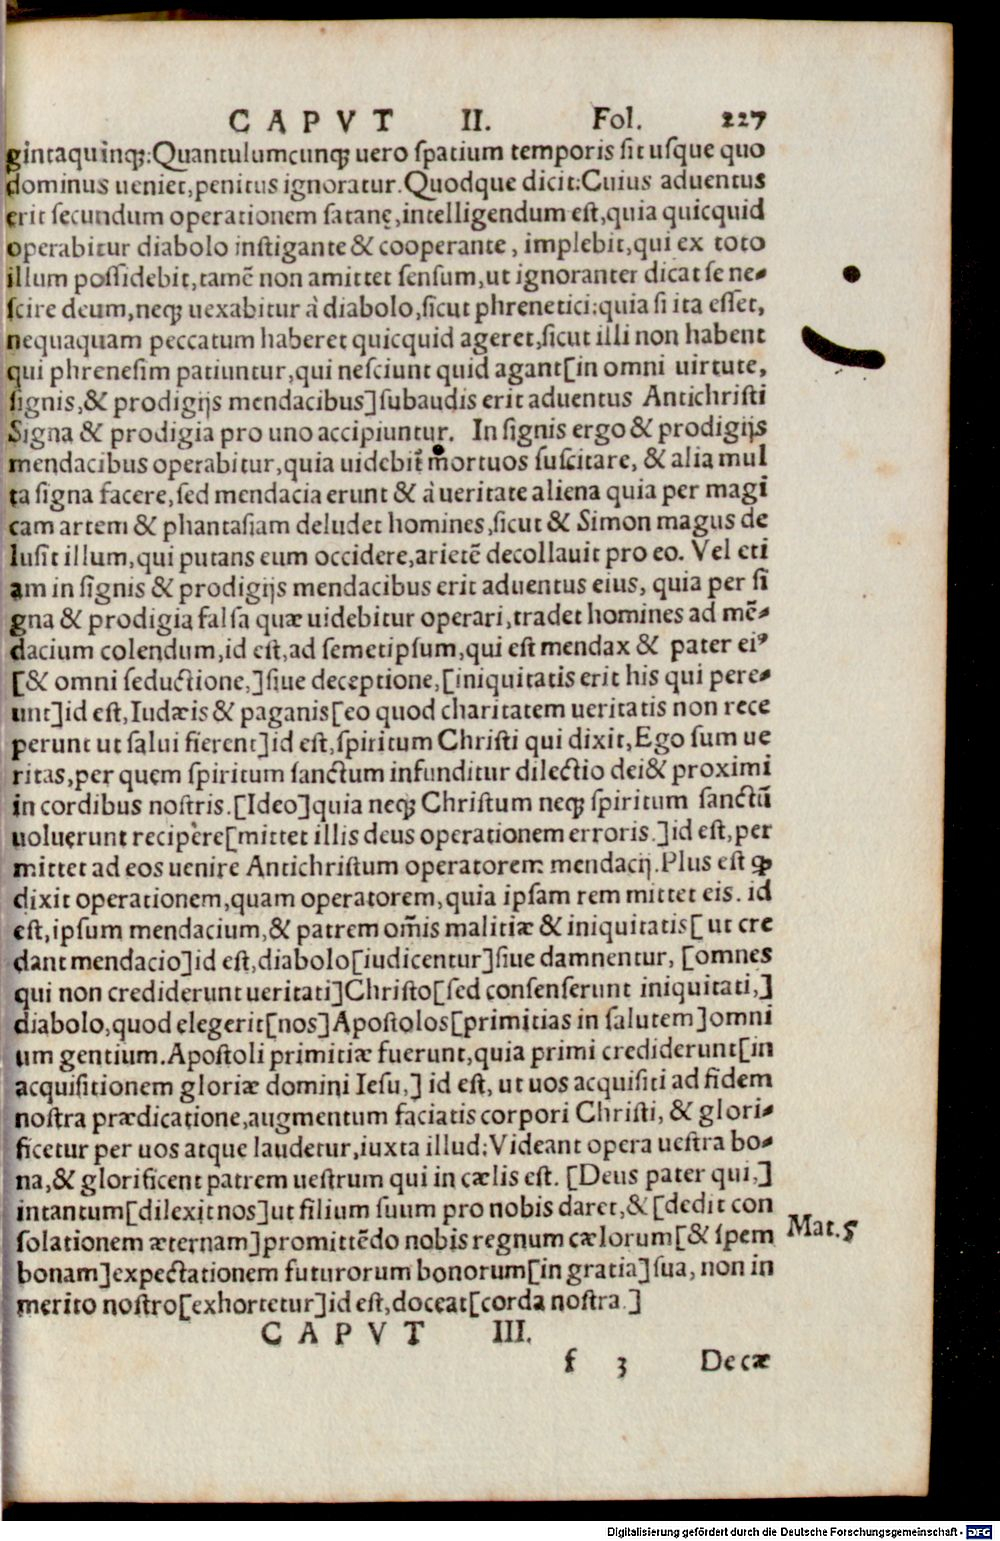 CAPVT II. Fol. 227
gintaquinqꝫ: Quantulumcunqꝫ uero spatium temporis sit usque quo
dominus ueniet, penitus ignoratur. Quodque dicit: Cuius aduentus
erit secundum operationem satanę, intelligendum est, quia quicquid
operabitur diabolo instigante & cooperante, implebit, qui ex toto
illum possidebit, tamē non amittet sensum, ut ignoranter dicat se ne-
scire deum, neqꝫ uexabitur à diabolo, sicut phrenetici: quia si ita esset,
nequaquam peccatum haberet quicquid ageret, sicut illi non habent
qui phrenesim patiuntur, qui nesciunt quid agant [in omni uirtute,
signis, & prodigijs mendacibus] subaudis erit aduentus Antichristi
Signa & prodigia pro uno accipiuntur. In signis ergo & prodigijs
mendacibus operabitur, quia uidebit̃ mortuos suscitare, & alia mul
ta signa facere, sed mendacia erunt & à ueritate aliena quia per magi
cam artem & phantasiam deludet homines, sicut & Simon magus de
lusit illum, qui putans eum occidere, arietē decollauit pro eo. Vel eti
am in signis & prodigijs mendacibus erit aduentus eius, quia per si
gna & prodigia falsa quæ uidebitur operari, tradet homines ad mē-
dacium colendum, id est, ad semetipsum, qui est mendax & pater eiꝰ
[& omni seductione,] siue deceptione, [iniquitatis erit his qui pere-
unt] id est, Iudæis & paganis [eo quod charitatem ueritatis non rece
perunt ut salui fierent] id est, spiritum Christi qui dixit, Ego sum ue
ritas, per quem spiritum sanctum infunditur dilectio dei & proximi
in cordibus nostris. [Ideo] quia neqꝫ Christum neqꝫ spiritum sanctū
uoluerunt recipere [mittet illis deus operationem erroris.] id est, per
mittet ad eos uenire Antichristum operatorem mendacij. Plus est ꝙ
dixit operationem, quam operatorem, quia ipsam rem mittet eis. id
est, ipsum mendacium, & patrem om̄is malitiæ & iniquitatis [ut cre
dant mendacio] id est, diabolo [iudicentur] siue damnentur, [omnes
qui non crediderunt ueritati] Christo [sed consenserunt iniquitati,]
diabolo, quod elegerit [nos] Apostolos [primitias in salutem] omni
um gentium. Apostoli primitiæ fuerunt, quia primi crediderunt [in
acquisitionem gloriæ domini Iesu,] id est, ut uos acquisiti ad fidem
nostra prædicatione, augmentum faciatis corpori Christi, & glori-
ficetur per uos atque laudetur, iuxta illud: Videant opera uestra bo-
na, & glorificent patrem uestrum qui in cælis est. [Deus pater qui,]
intantum [dilexit nos] ut filium suum pro nobis daret, & [dedit con
solationem æternam] promittēdo nobis regnum cælorum [& spem
Mat. 5
bonam] expectationem futurorum bonorum [in gratia] sua, non in
merito nostro [exhortetur] id est, doceat [corda nostra.]
CAPVT III.
f 3 De cæ
Digitalisierung gefördert durch die Deutsche Forschungsgemeinschaft - DFG